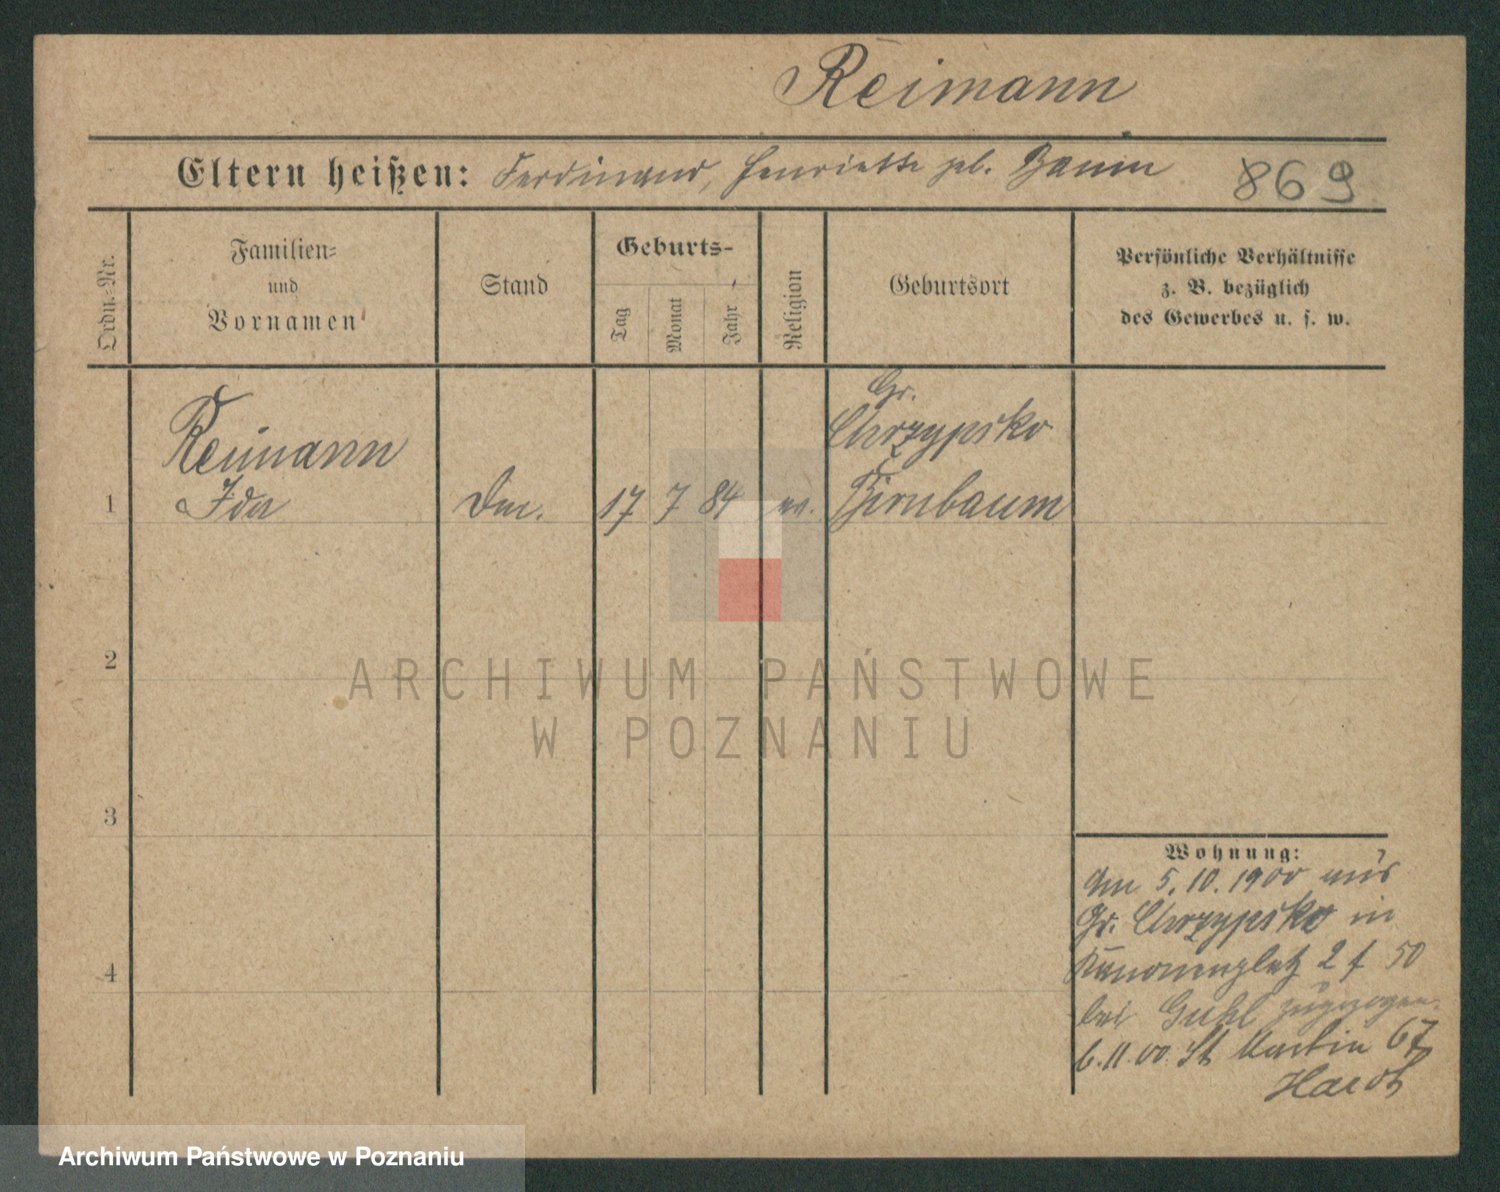 Reimann
Eltern heißen: Ferdinand, Henriette geb. Baum
869
Ordn.-Nr.
Familien-
und
Vornamen
Stand
Geburts-
Tag
Monat
Jahr
Religion
Geburtsort
Persönliche Verhältnisse
z. B. bezüglich
des Gewerbes u. s. w.
Gr.
Reimann
Chrzypsko
1 Ida 17 7 84 ev. Birnbaum
2
ARCHIWUM PAŃSTWOWE
W POZNANIU
3
Wohnung:
Am 5.10.1900 aus
Gr. Chrzypsko in
4
Kanonenplatz 2 f 50
bei Guhl zugezogen.
6.11.00. St Martin 67
Archiwum Państwowe w Poznaniu